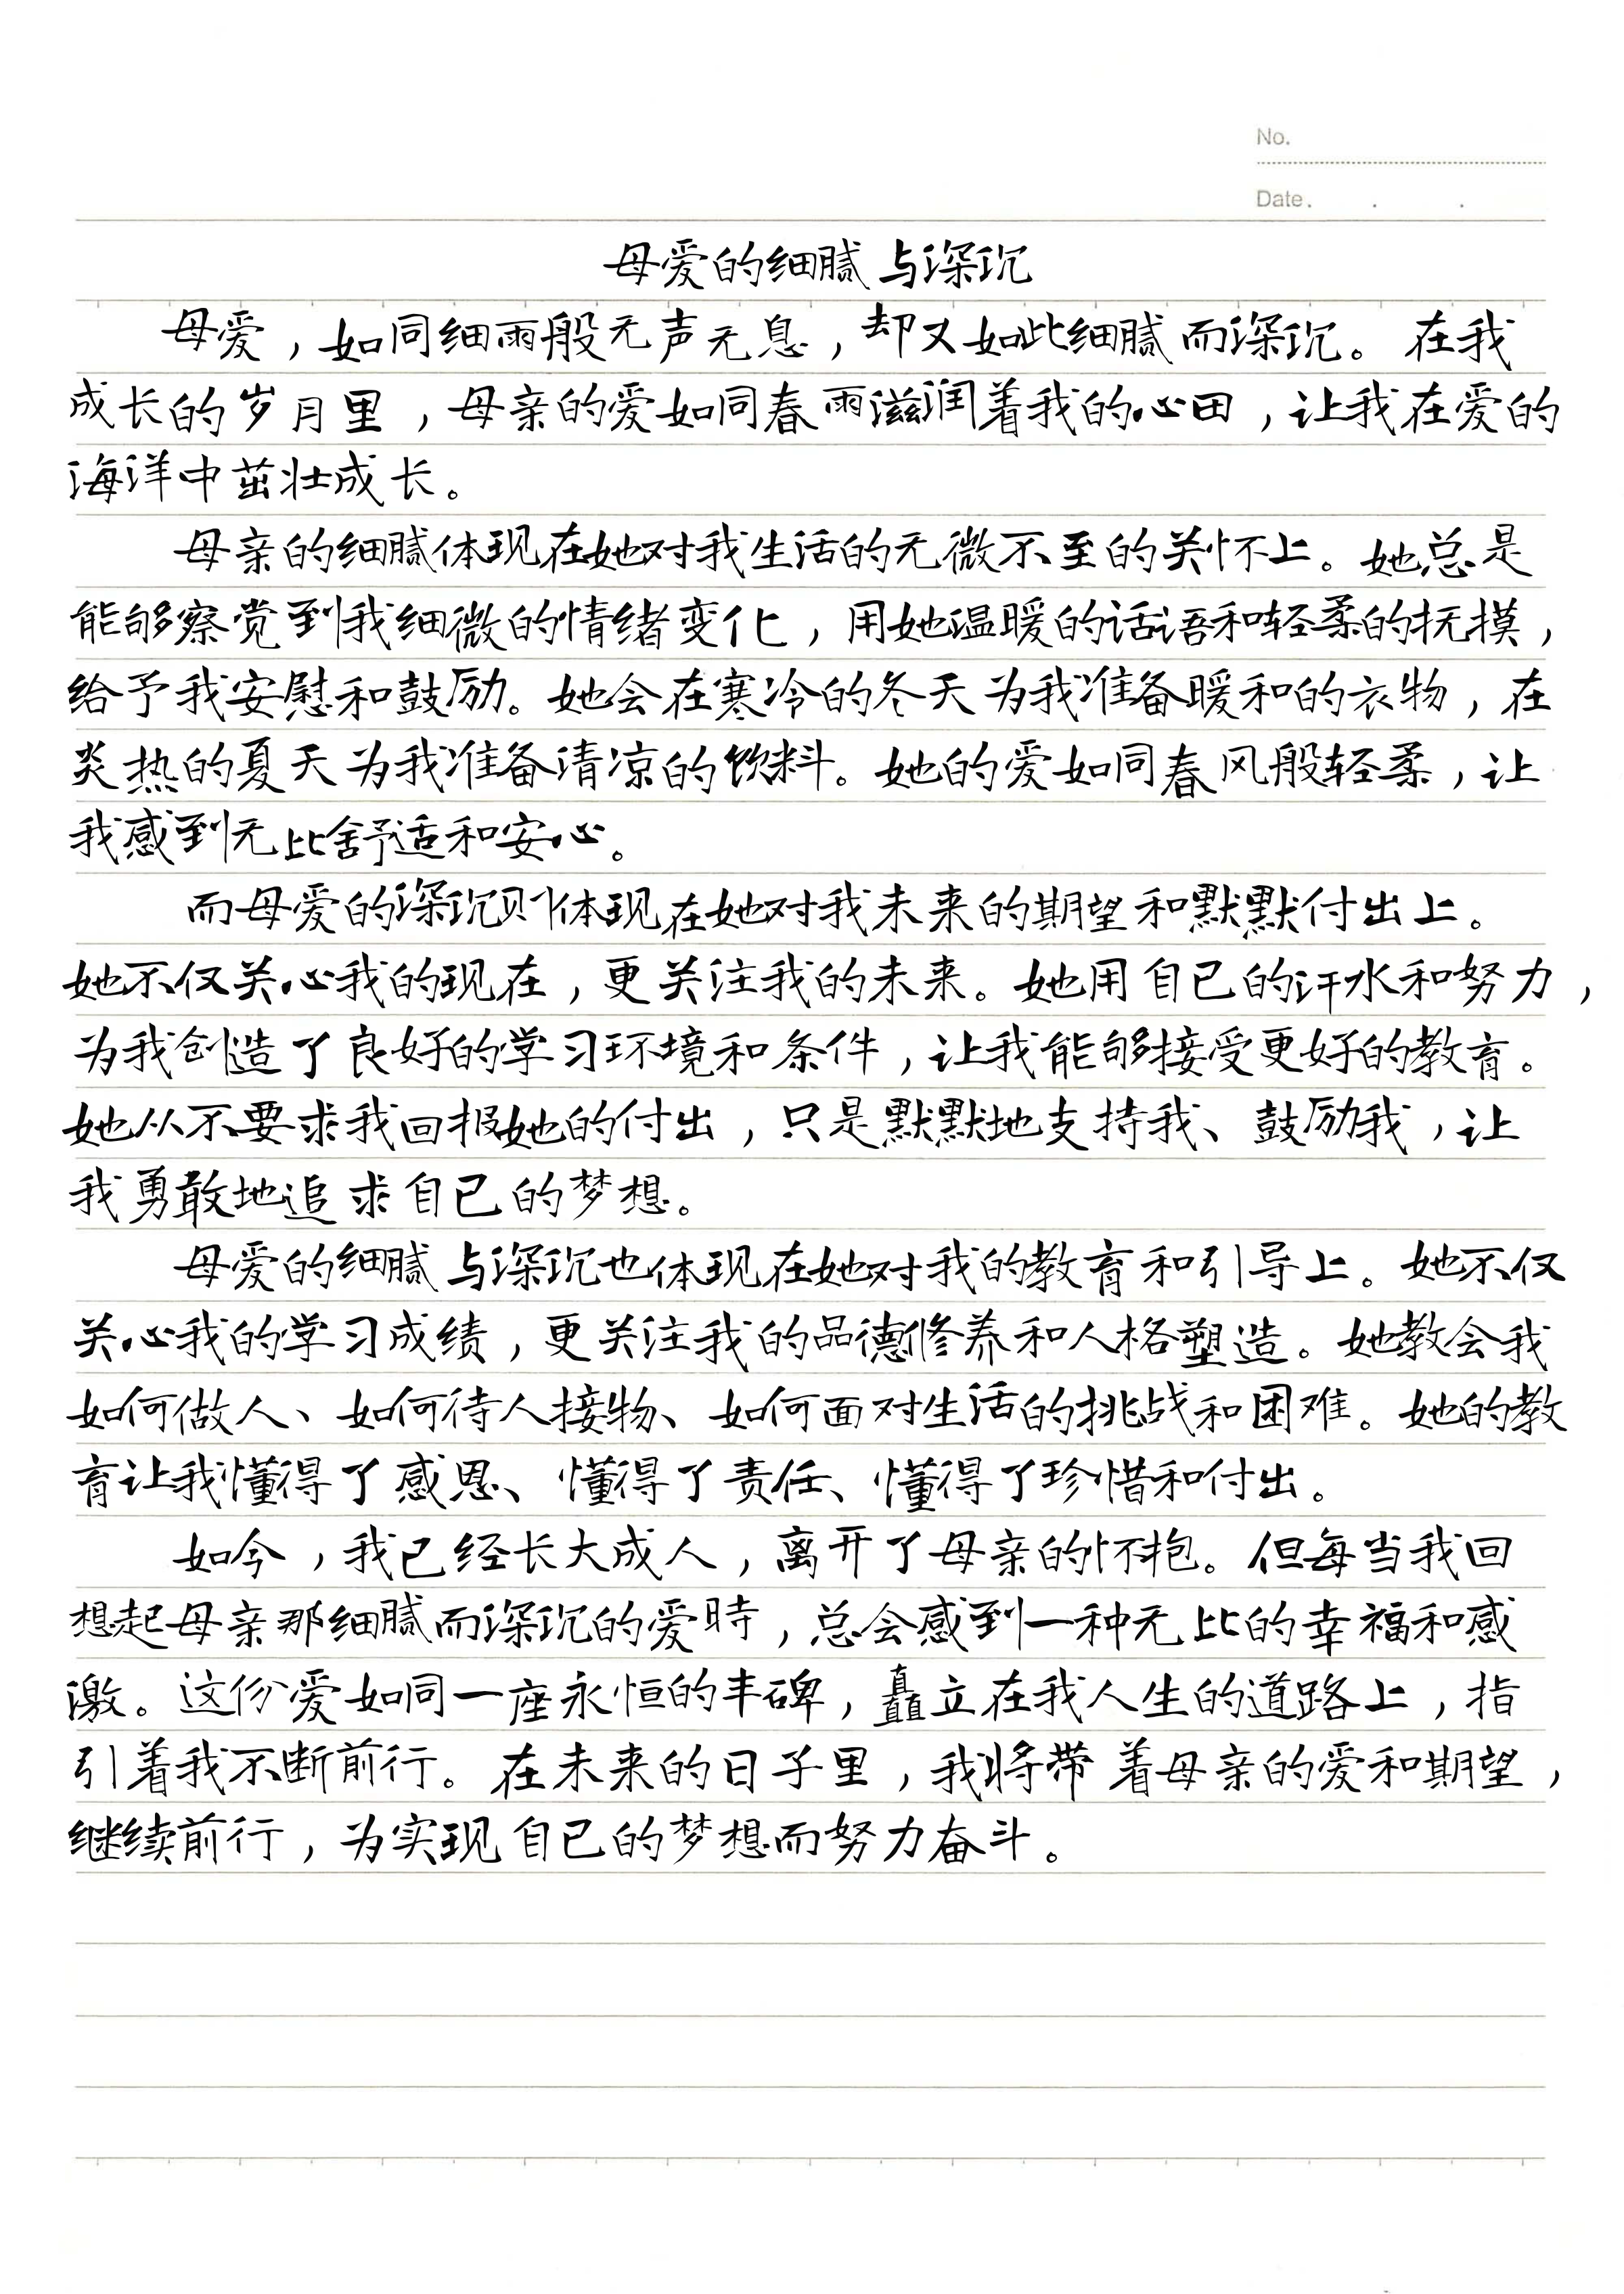 No.
Date.
母爱的细腻与深沉
母爱，如同细雨般无声无息，却又如此细腻而深沉。在我
成长的岁月里，母亲的爱如同春雨滋润着我的心田，让我在爱的
海洋中茁壮成长。
母亲的细腻体现在她对我生活的无微不至的关怀上。她总是
能够察觉到我细微的情绪变化，用她温暖的话语和轻柔的抚摸，
给予我安慰和鼓励。她会在寒冷的冬天为我准备暖和的衣物，在
炎热的夏天为我准备清凉的饮料。她的爱如同春风般轻柔，让
我感到无比舒适和安心。
而母爱的深沉则体现在她对我未来的期望和默默付出上。
她不仅关心我的现在，更关注我的未来。她用自己的汗水和努力，
为我创造了良好的学习环境和条件，让我能够接受更好的教育。
她从不要求我回报她的付出，只是默默地支持我、鼓励我，让
我勇敢地追求自己的梦想。
母爱的细腻与深沉也体现在她对我的教育和引导上。她不仅
关心我的学习成绩，更关注我的品德修养和人格塑造。她教会我
如何做人、如何待人接物、如何面对生活的挑战和困难。她的教
育让我懂得了感恩、懂得了责任、懂得了珍惜和付出。
如今，我已经长大成人，离开了母亲的怀抱。但每当我回
想起母亲那细腻而深沉的爱時，总会感到一种无比的幸福和感
激。这份爱如同一座永恒的丰碑，矗立在我人生的道路上，指
引着我不断前行。在未来的日子里，我将带着母亲的爱和期望，
继续前行，为实现自己的梦想而努力奋斗。